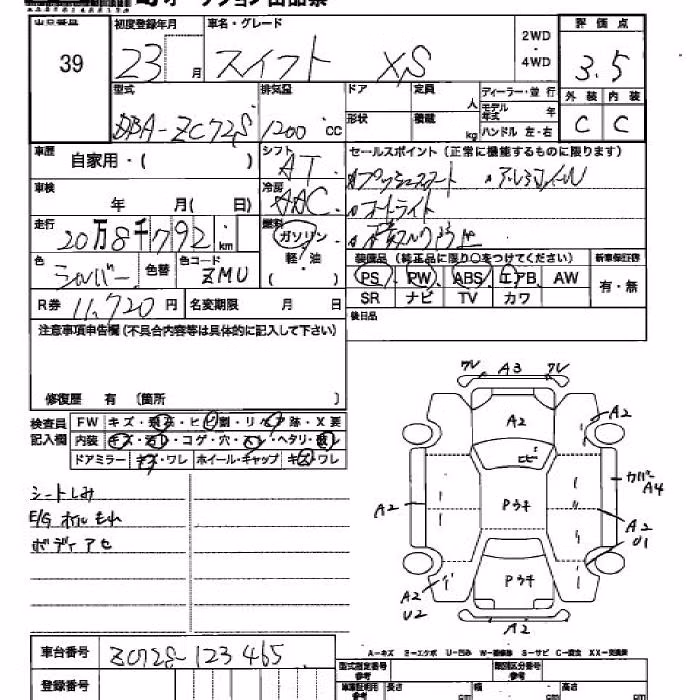 オークション出品票
出品番号 初度登録年月 車名・グレード 2WD・4WD 評価点
39 23 月 スイフト XS 3.5
型式 排気量 ドア 定員 人 ディーラー・並行 外装 内装
DBA-ZC72S 1200 cc 形状 積載 kg モデル年式 年 ハンドル 左・右 C C
車歴 自家用・( ) シフト AT セールスポイント (正常に機能するものに限ります)
プッシュスタート アルミホイル
車検 年 月( 日) 冷房 AAC
オートライト
走行 20万8千792 km 燃料 ガソリン 軽・油 ( )
装備品 (純正品に限り○をつけてください) 新車保証書
色 シルバー 色替 色コード ZMU
PS PW ABS エアB AW 有・無
R券 11,720 円 名変期限 月 日
SR ナビ TV カワ
注意事項申告欄 (不具合内容等は具体的に記入して下さい) 後日品
修復歴 有 (箇所 )
検査員記入欄
FW キズ・飛石・ヒビ割・リペア跡・X要
内装 キズ・汚レ・コゲ・穴・スレ・ヘタリ・破レ
ドアミラー キズ・ワレ ホイール・キャップ キズ・ワレ
シートしみ
E/Gオイルもれ
ボディアセ
ワレ A3 ワレ
A2 A2
ヒビ
Pウキ カバー A4
A2 A2 U1
Pウキ
A2 U2
A2
A-キズ Y-エクボ U-凹み W-補修跡 S-サビ C-腐食 XX-交換済
車台番号 ZC72S-123465
型式指定番号 参考 類別区分番号 参考
登録番号
車庫証明用 参考 長さ cm 幅 cm 高さ cm